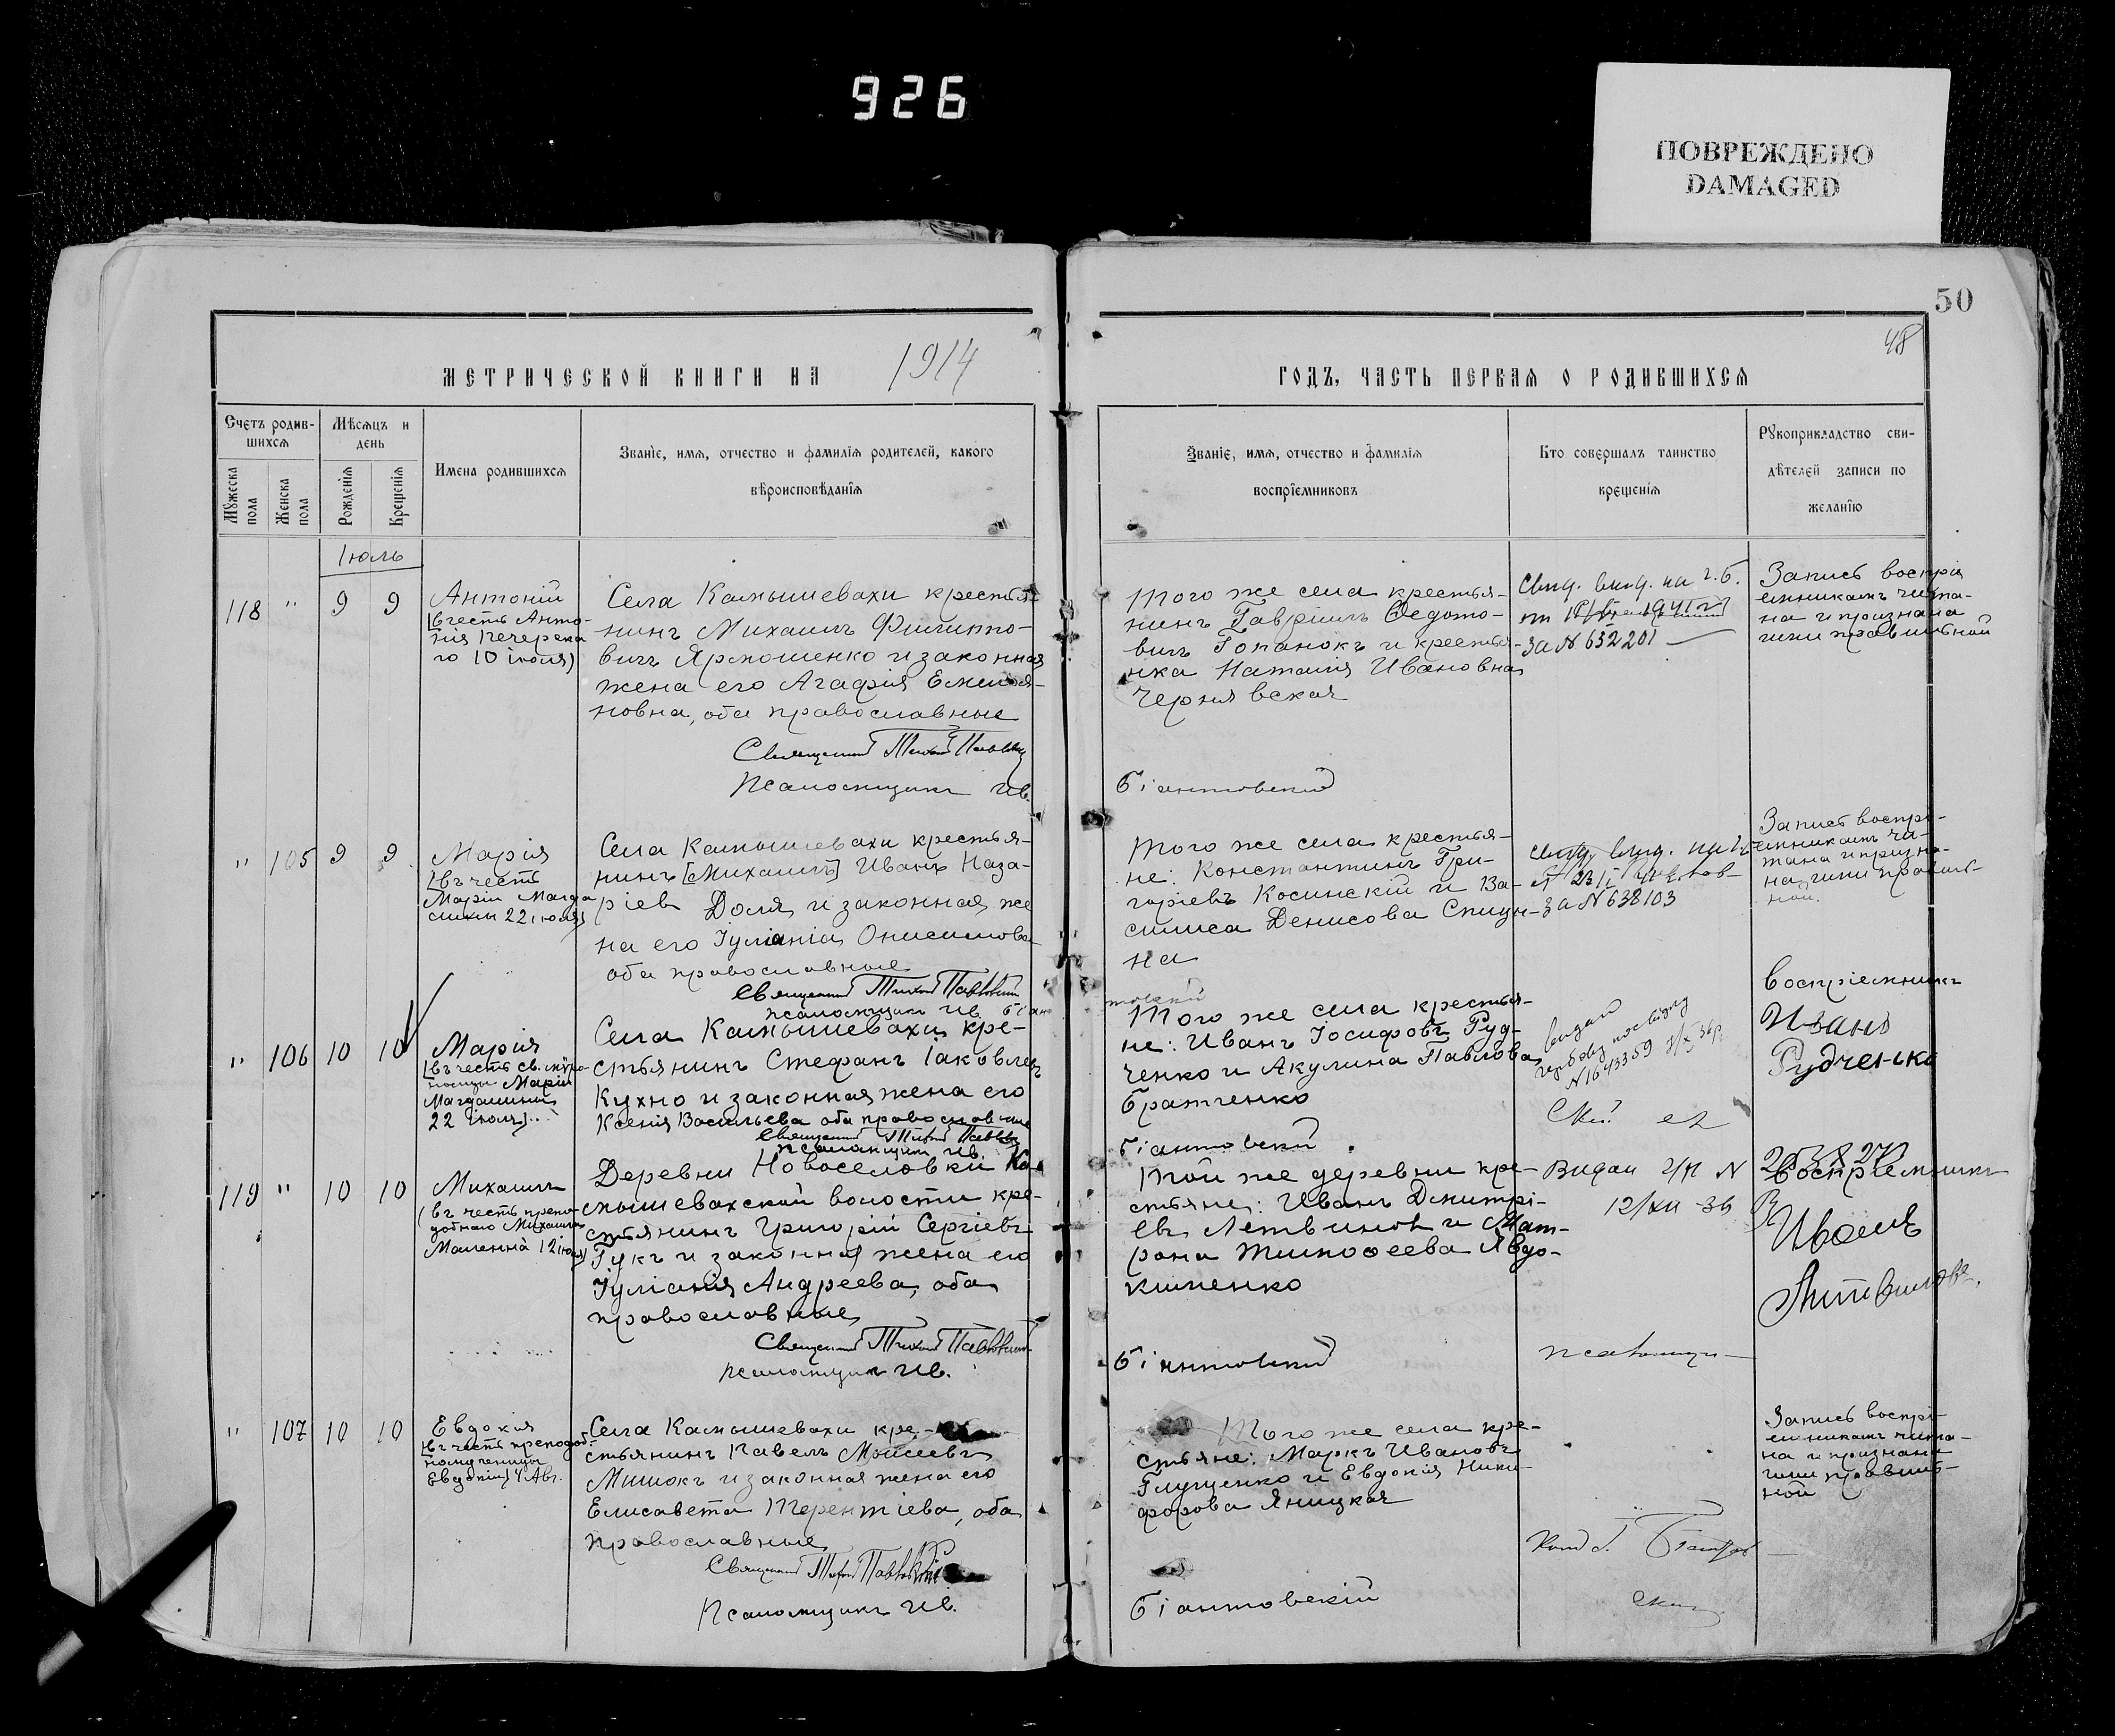 926
ПОВРЕЖДЕНО
DAMAGED
50
48
МЕТРИЧЕСКОЙ КНИГИ НА 1914
ГОДЪ, ЧАСТЬ ПЕРВАЯ О РОДИВШИХСЯ
Счетъ родив-
шихся
Мужеска
пола
Женска
пола
Мѣсяцъ и
день
Рожденія
Крещенія
Имена родившихся
Званіе, имя, отчество и фамилія родителей, какого
вѣроисповѣданія
Званіе, имя, отчество и фамилія
воспріемниковъ
Кто совершалъ таинство
крещенія
Рукоприкладство сви-
дѣтелей записи по
желанію
Іюль
118 " 9 9
Антоній
(въ честь Анто-
нія Печерска
го 10 іюля)
Села Камышевахи крестья-
нинъ Михаилъ Филиппо-
вичъ Ярмошенко и законная
жена его Агафія Емилья-
новна, оба православные
Священникъ Тихонъ
Псаломщикъ Ив.
Того же села крестья-
нинъ Гавріилъ Федото-
вичъ Гопанокъ и крестья-
нка Наталія Ивановна
Чернявская
Біантовскій
за N 632201
Запись воспрі
емникамъ чита-
на и признана
ими правильной
" 105 9 9
Марія
(въ честь
Маріи Магда
лины 22 іюля)
Села Камышевахи крестья-
нинъ [Михаилъ] Иванъ Наза-
ріевъ Доля и законная же
на его Іуліанія Онисимова
оба православные
Священникъ Тихонъ
псаломщикъ Ив. Біан
Того же села крестья-
не: Константинъ Гри-
горіевъ Косинскій и Ва-
силиса Денисова Спицы-
на
товскій
за N 638103
Запись воспрі-
емникамъ чи-
тана и призна-
на ими правиль-
ной.
" 106 10 10
Марія
(въ честь св. мѵро-
носицы Маріи
Магдалины
22 іюля)
Села Камышевахи кре-
стьянинъ Стефанъ Іаковлевъ
Кухно и законная жена его
Ксенія Васильева оба православные
Священникъ Тихонъ
псаломщикъ Ив.
Того же села крестья-
не: Иванъ Іосифовъ Руд-
ченко и Акулина Павлова
Братченко
Біантовскій
видан
N 1643359
Воспріемникъ
Иванъ
Рудченько
119 " 10 10
Михаилъ
(въ честь препо-
добнаго Михаила
Малеина 12 іюля)
Деревни Новоселовки Ка-
мышевахской волости кре-
стьянинъ Григорій Сергіевъ
Гукъ и законная жена его
Іуліанія Андреева, оба
православные
Священникъ Тихонъ
псаломщикъ Ив.
Той же деревни кре-
стьяне: Иванъ Димитрі-
евъ Летвиновъ и Мат-
рона Тимофеева Явдо-
кименко
Біантовскій
Видан N
12/XII-36
Воспріемникъ
Иванъ
107 10 10
Евдокія
(въ честь преподоб-
номученицы
Евдокіи) 4 Авг.
Села Камышевахи кре-
стьянинъ Павелъ Моисеевъ
Мишокъ и законная жена его
Елисавета Терентіева, оба
православные
Священникъ Тихонъ
Псаломщикъ Ив.
Того же села кре-
стьяне: Маркъ Ивановъ
Глущенко и Евдокія Ники-
форова Яницкая
Біантовскій
Запись воспрі-
емникамъ чита-
на и признана
ими правиль-
ной